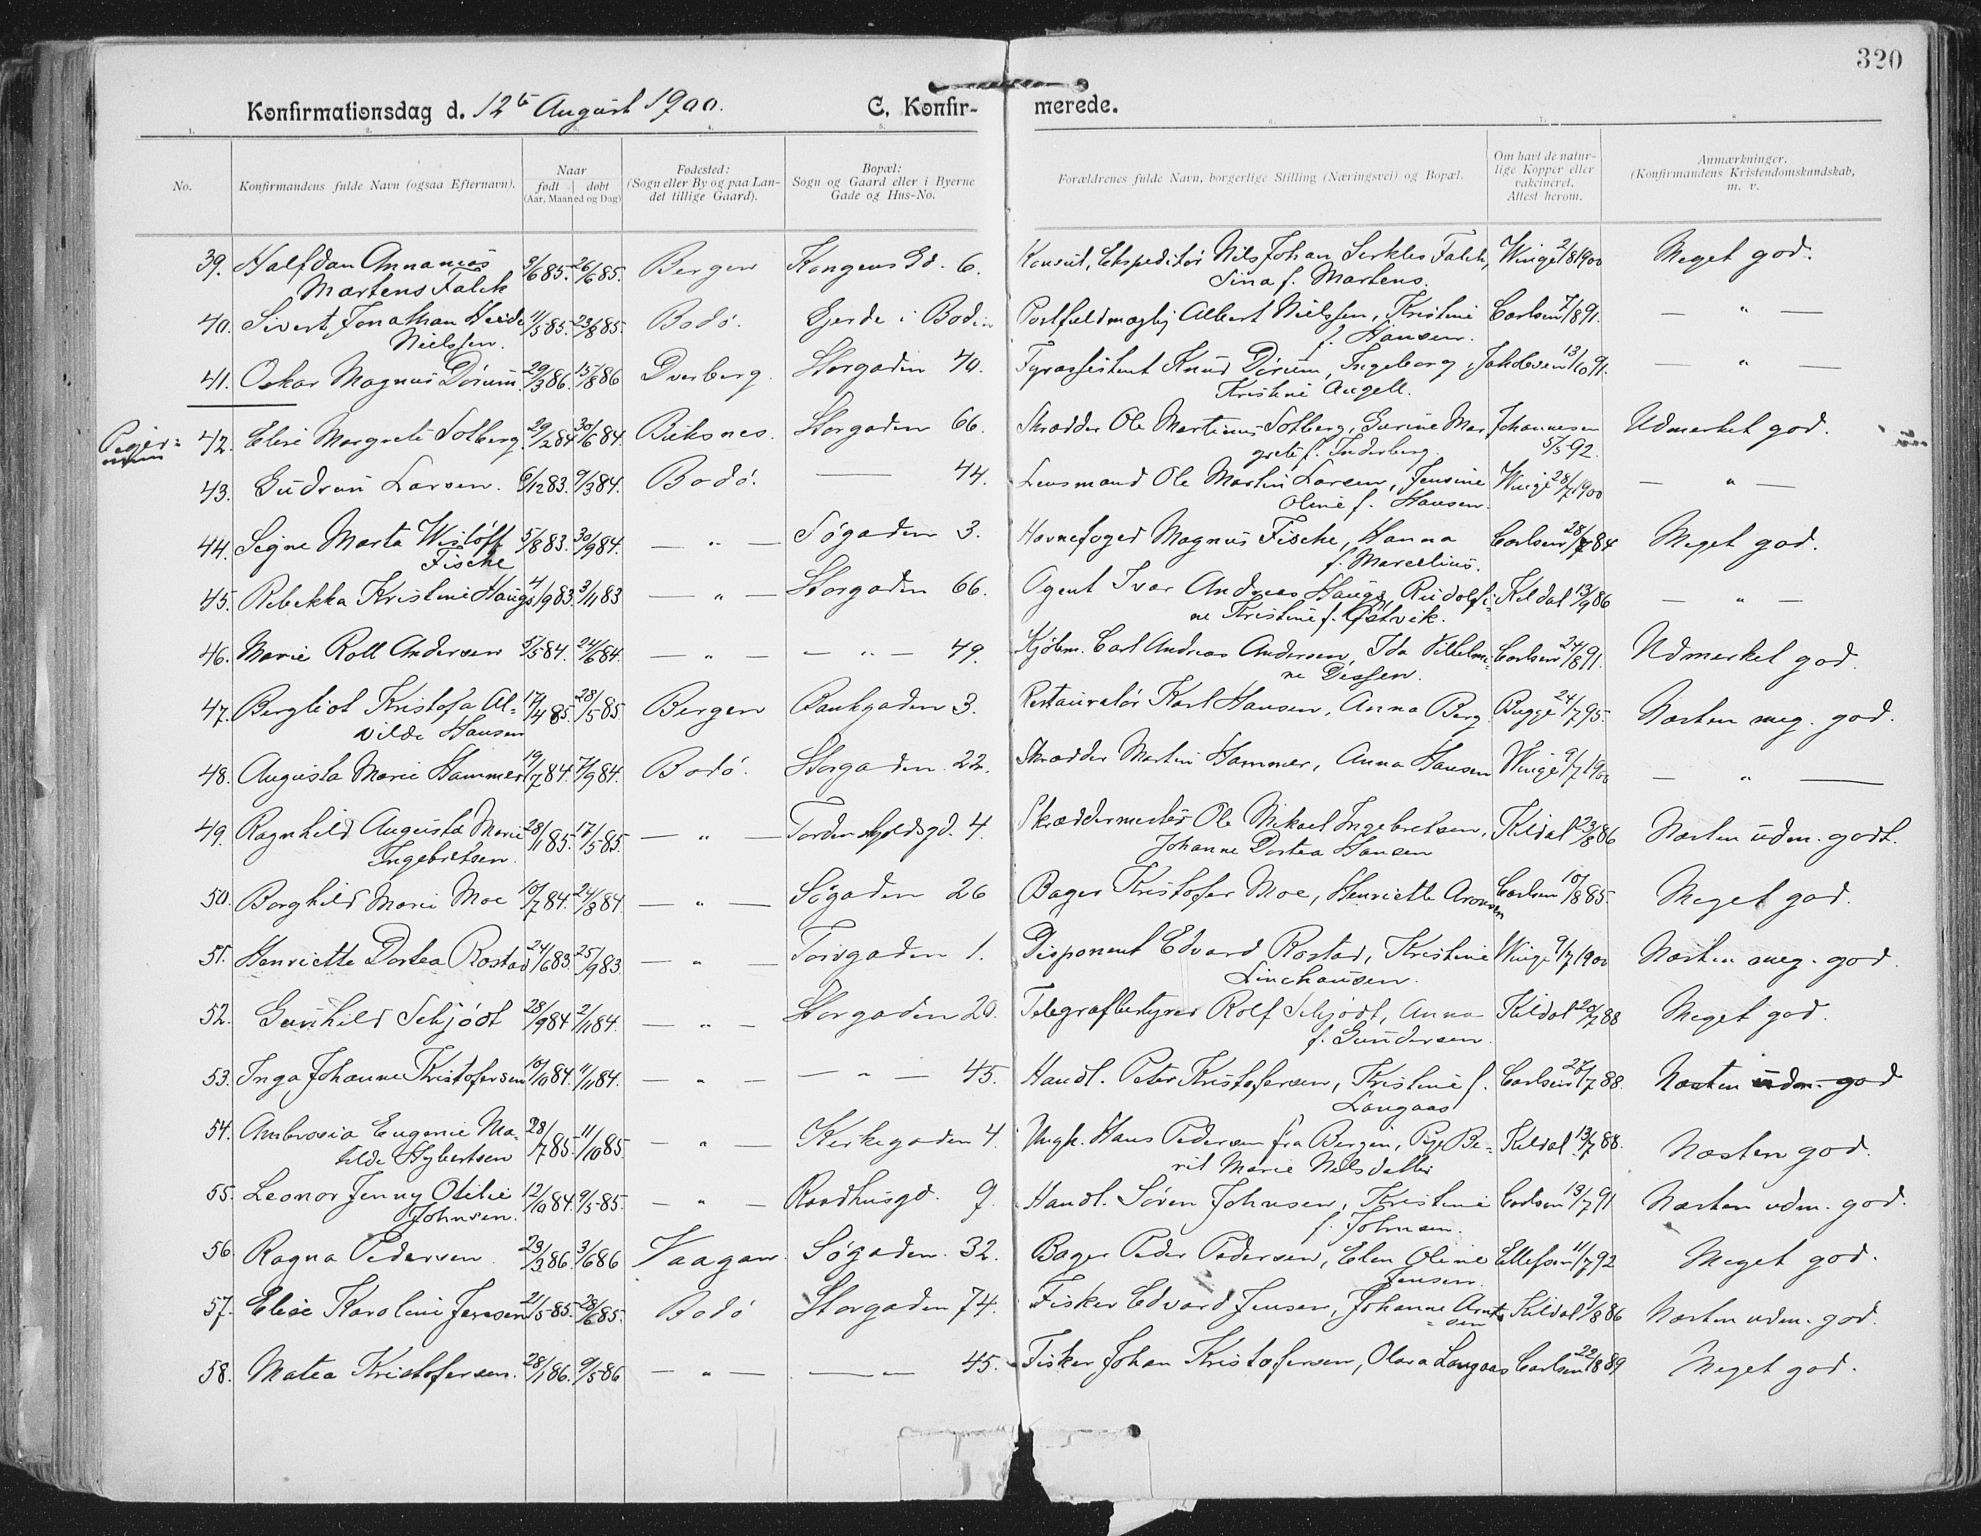 320
Konfirmationsdag d. 12te August 1900. C. Konfir- merede.
1. 2. 3. 4. 5. 6. 7. 8.
No. Konfirmandens fulde Navn (ogsaa Efternavn). Naar født døbt (Aar, Maaned og Dag) Fødested: (Sogn eller By og paa Landet tillige Gaard). Bopæl: Sogn og Gaard eller i Byerne Gade og Hus-No. Forældrenes fulde Navn, borgerlige Stilling (Næringsvei) og Bopæl. Om havt de naturlige Kopper eller vakcineret. Attest herom. Anmærkninger. (Konfirmandens Kristendomskundskab, m. v.
39. Halfdan Annanias 3/6 85. 26/6 85. Bergen Kongens Gd. 6. Konsul, Ekspeditør Nils Johan Falck, Winge 2/8 1900 Meget god.
Martens Falck Sina f. Martens.
40. Sivert Jonathan Heide 11/5 85. 23/8 85. Bodø. Gjerde i Bodin Postfuldmægtig Albert Nielssen, Kristine Carlsen 7/8 91. — " —
Nielssen. f. Hansen.
41. Oskar Magnus Dørum. 29/3 86. 15/8 86 Dverberg. Storgaden 40. Fyrassistent Knud Dørum, Ingeborg Jakobsen 13/10 91. — " —
Kristine Angell.
Piger:
42. Elise Margrete Solberg. 29/2 84 30/6 84. Buksnes. Storgaden 66. Skrædder Ole Martinus Solberg, Gurine Mar Johannesen Udmerket god.
grete f. Inderberg. 5/5 92.
43. Gudrun Larsen. 6/12 83. 9/3 84. Bodø. — 44. Lensmand Ole Martin Larsen, Jensine Winge 28/7 1900 — " —
Oline f. Hansen.
44. Signe Marta Wisløff 5/8 83. 30/9 84. — " — Søgaden 3. Havnefoged Magnus Fische, Hanna Carlsen 28/7 84 Meget god.
Fische f. Marcelius.
45. Rebekka Kristine Haugs 4/9 83. 3/11 83 — " — Storgaden 66. Agent Ivar Andreas Haugs, Rudolfi- Kildal 13/9 86 — " —
ne Kristine f. Østvik.
46. Marie Roll Andersen 5/5 84. 24/6 84. — " — — " — 49. Kjøbm. Carl Andreas Andersen, Ida Vilhelmi- Carlsen 24/8 91. Udmerket god.
ne Dessen.
47. Bergliot Kristofa Al- 17/4 85. 28/5 85 Bergen Bankgaden 3. Restauratør Karl Hansen, Anna Berg. Bugge 24/7 95. Næsten meg. god.
vilde Hansen
48. Augusta Marie Hammer 19/7 84. 7/9 84. Bodø. Storgaden 22. Skrædder Martin Hammer, Anna Hansen Winge 9/7 1900 — " —
49. Ragnhild Augusta Marie 28/1 85. 17/5 85. — " — Tordenskjoldsgd. 4. Skræddermester Ole Mikael Ingebretsen, Kildal 23/8 86 Næsten udm. godt.
Ingebretsen. Johanne Dortea Hansen
50. Borghild Marie Moe 10/7 84. 24/8 84. — " — Søgaden 26 Bager Kristofer Moe, Henriette Aronsen Carlsen 10/8 85. Meget god.
51. Henriette Dortea Rostad 24/6 83. 25/9 83 — " — Torvgaden 1. Disponent Edvard Rostad, Kristine Winge 9/7 1900 Næsten meg. god.
Linchausen.
52. Gunhild Schjødt 28/9 84 2/11 84. — " — Storgaden 20. Telegrafbestyrer Rolf Schjødt, Anna Kildal 20/7 88 Meget god.
f. Gundersen.
53. Inga Johanne Kristofersen 10/10 84. 11/11 84. — " — — " — 45. Handl. Peter Kristofersen, Kristine f. Carlsen 20/7 88. Næsten udm. god
Langaas
54. Ambrosia Eugenie Ma- 28/7 85. 11/10 85. — " — Kirkegaden 4. Ungk. Hans Pedersen fra Bergen, Pige Be- Kildal 13/7 88. Næsten god.
tilde Hybertsen rit Marie Nilsdatter
55. Leonor Jenny Otilie 12/10 84. 9/5 85. — " — Raadhusgd. 9. Handl. Søren Johnsen, Kristine Carlsen 13/7 91 Næsten udm. god.
Johnsen. f. Johnsen.
56. Ragna Pedersen 23/3 86. 3/6 86 Vaagan. Søgaden. 32. Bager Peder Pedersen, Elen Oline Ellefsen 11/7 92 Meget god.
Jensen.
57. Elise Karoline Jensen 21/5 85. 28/6 85. Bodø Storgaden 74. Fisker Edvard Jensen, Johanne Arnt- Kildal 9/8 86 Næsten udm. god.
sen
58. Matea Kristofersen. 28/1 86. 9/5 86 — " — — " — 45. Fisker Johan Kristofersen, Olava Langaas Carlsen 22/8 89 Meget god.